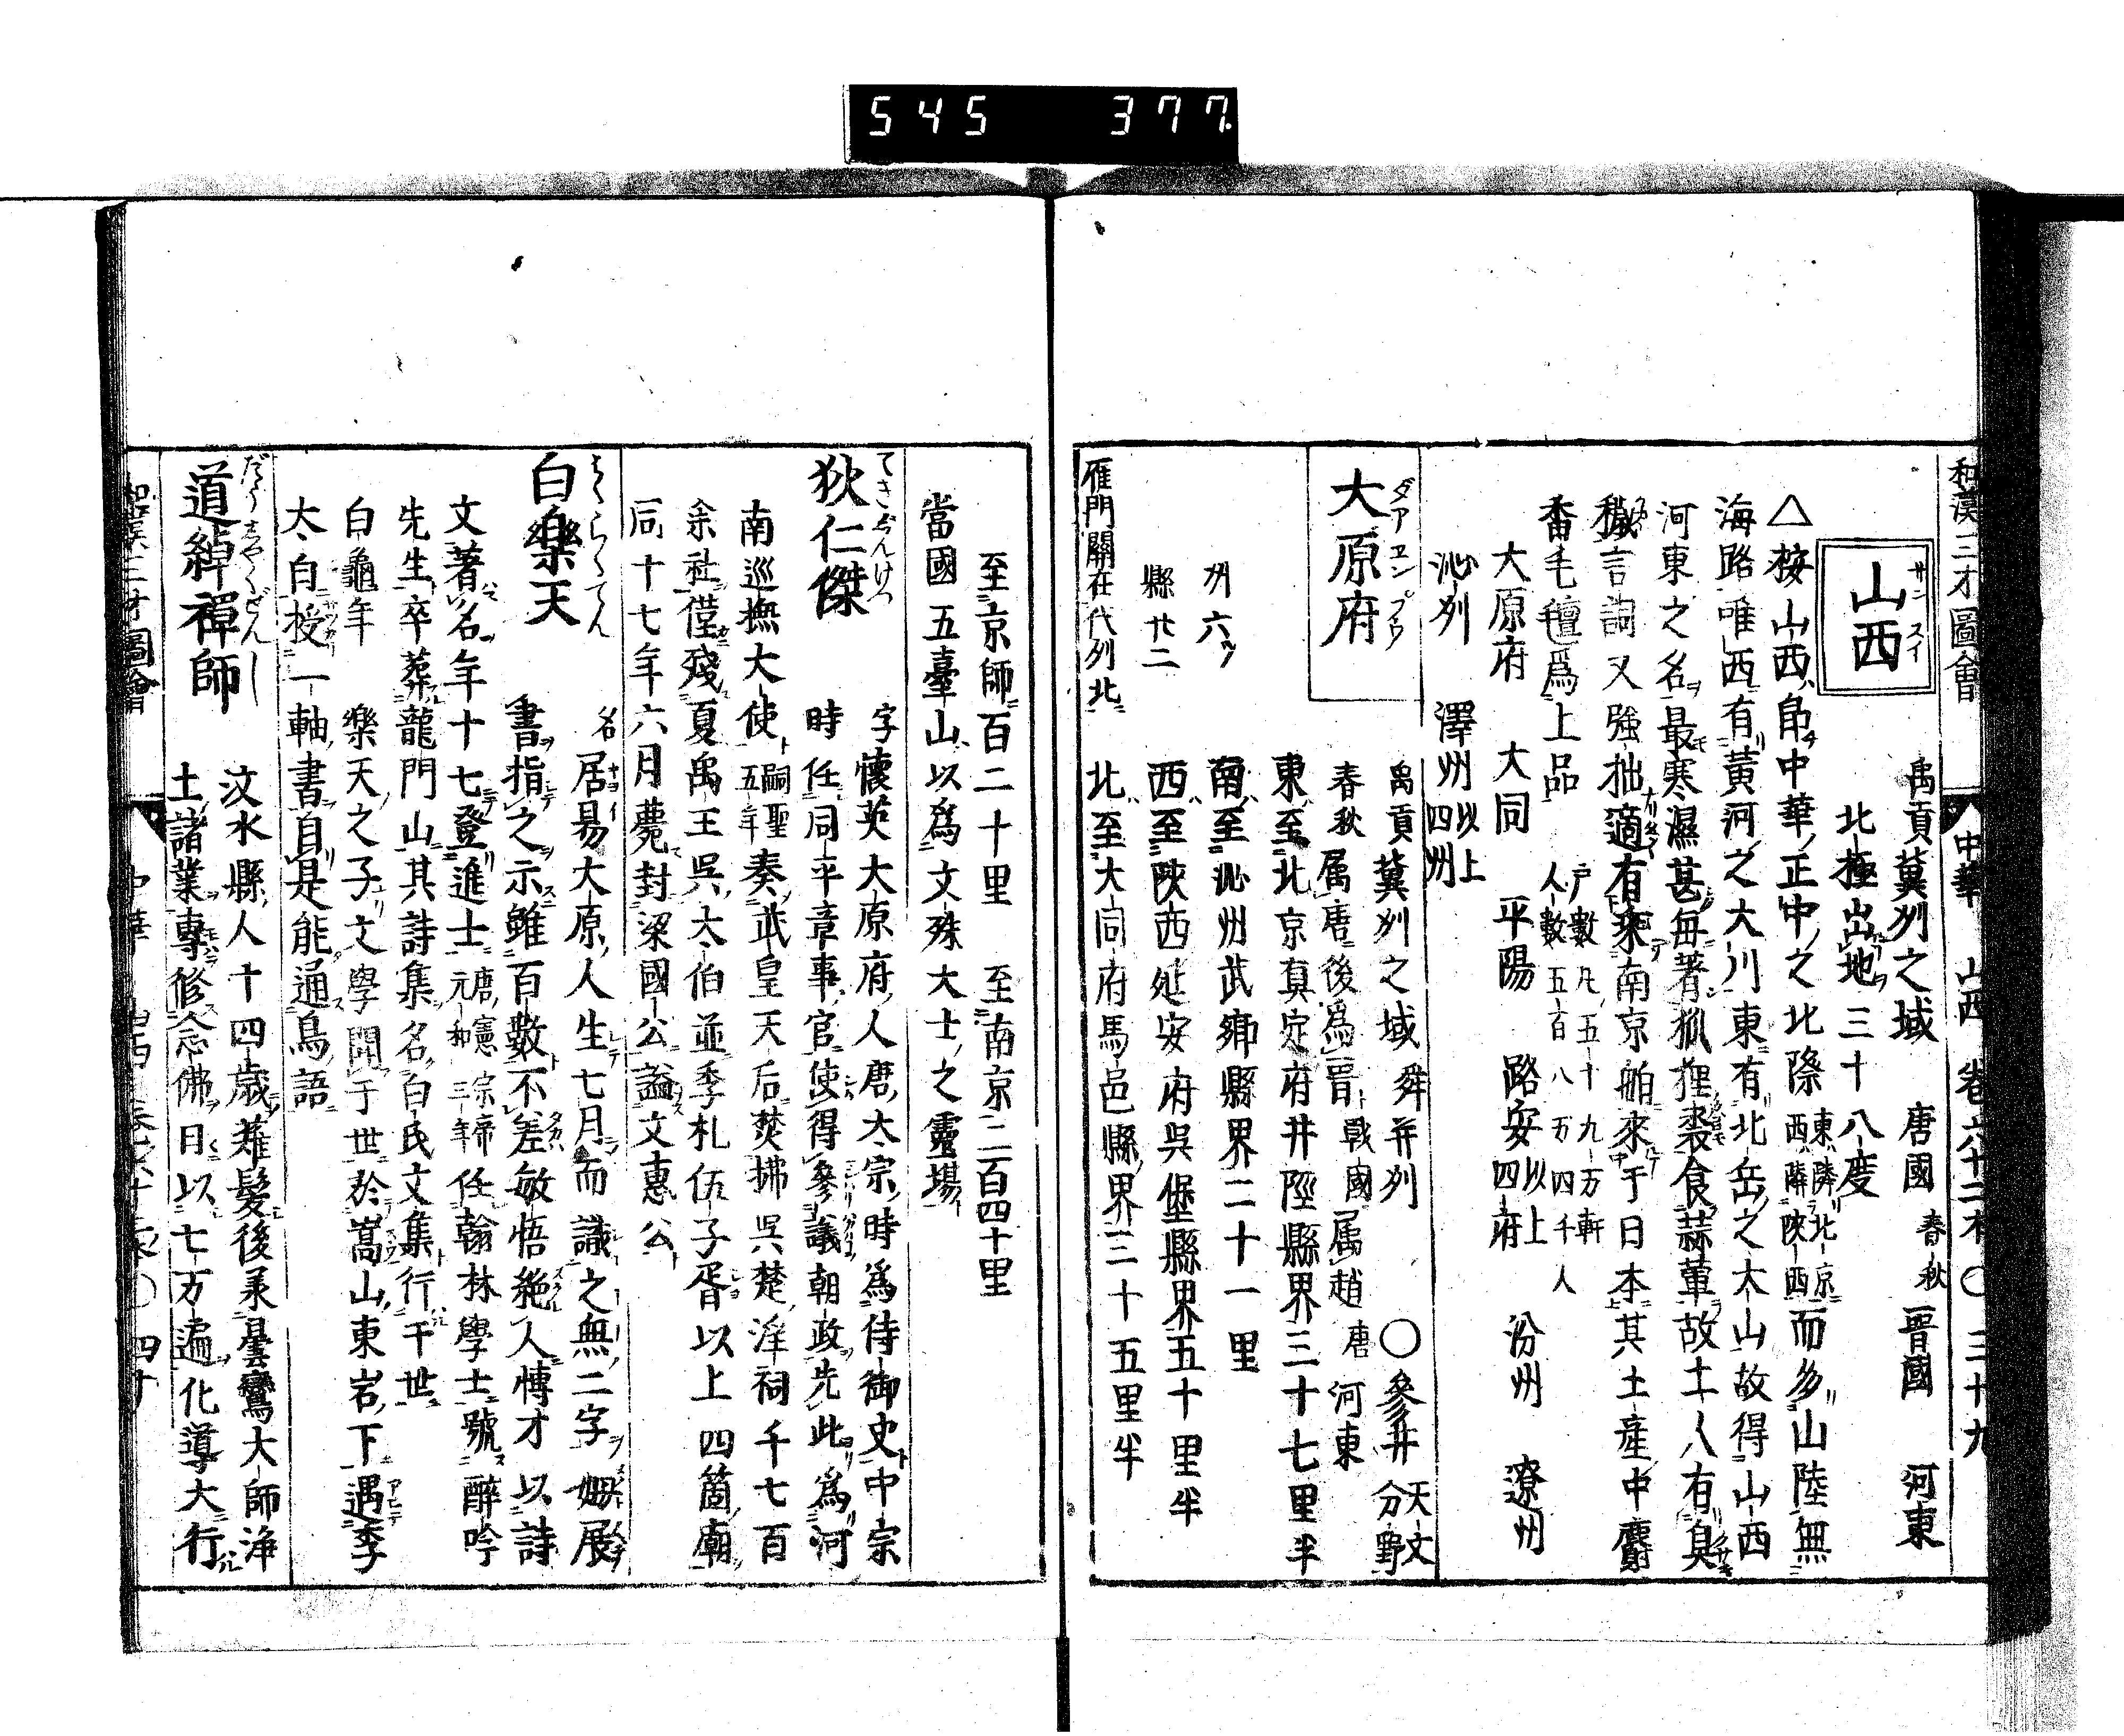 545 377
和漢三才圖會 中華 山西 卷六十二本 ○ 三十九
山西
サンスイ
禹貢冀州之域 唐國 春秋 晋國 河東
北極出地三十八度
△按山西帛中華正中之北際 東隣北京 西隣陝西 而多山陸無
海路唯西有黃河之大川東有北岳之太山故得山西
河東之名最寒濕甚每著狐狸裘食蒜葷故土人有臭
穢言詞又強拙適有乘南京舶來于日本其土産中麝
香毛氊爲上品 戸數凡五十九万軒 人數五百八万四千人
大原府 大同 平陽 路安 以上四府 汾州 遼州
沁州 澤州 以上四州
大原府
ダアヱンプウ
禹貢冀州之域 舜并州 ○參井 天文分野
春秋属唐後爲晋 戰國属趙 唐 河東
東至北京真定府井陘縣界三十七里半
南至沁州武鄉縣界二十一里
州六ツ
西至陝西延安府呉堡縣界五十里半
縣廿二
北至大同府馬邑縣界三十五里半
雁門關在代州北
至京師百二十里 至南京二百四十里
當國五臺山以爲文殊大士之靈場
狄仁傑
てきぢんけつ
字懷英大原府人唐太宗時爲侍御史中宗
時任同平章事官使得參議朝政先此爲河
南巡撫大使 嗣聖五年 奏武皇天后焚拂呉楚淫祠千七百
余社僅殘夏禹王呉太伯並季札伍子胥以上四箇廟
同十七年六月薨封梁國公謚文惠公
白樂天
はくらくてん
名居易大原人生七月而識之無二字姆展
書指之示雖百數不差敏悟絶人愽才以詩
文著名年十七登進士 唐憲宗帝元和三年 任翰林學士號醉吟
先生卒葬龍門山其詩集名白氏文集行于世
白龜年 樂天之子文學聞于世於嵩山東岩下遇李
太白授一軸書自是能通鳥語
道綽禪師
だうしやくぜんし
汶水縣人十四歳薙髮後承曇鸞大師淨
土諸業專修念佛日以七万遍化導大行
和漢三才圖會 中華 山西 卷六十二本 ○ 四十